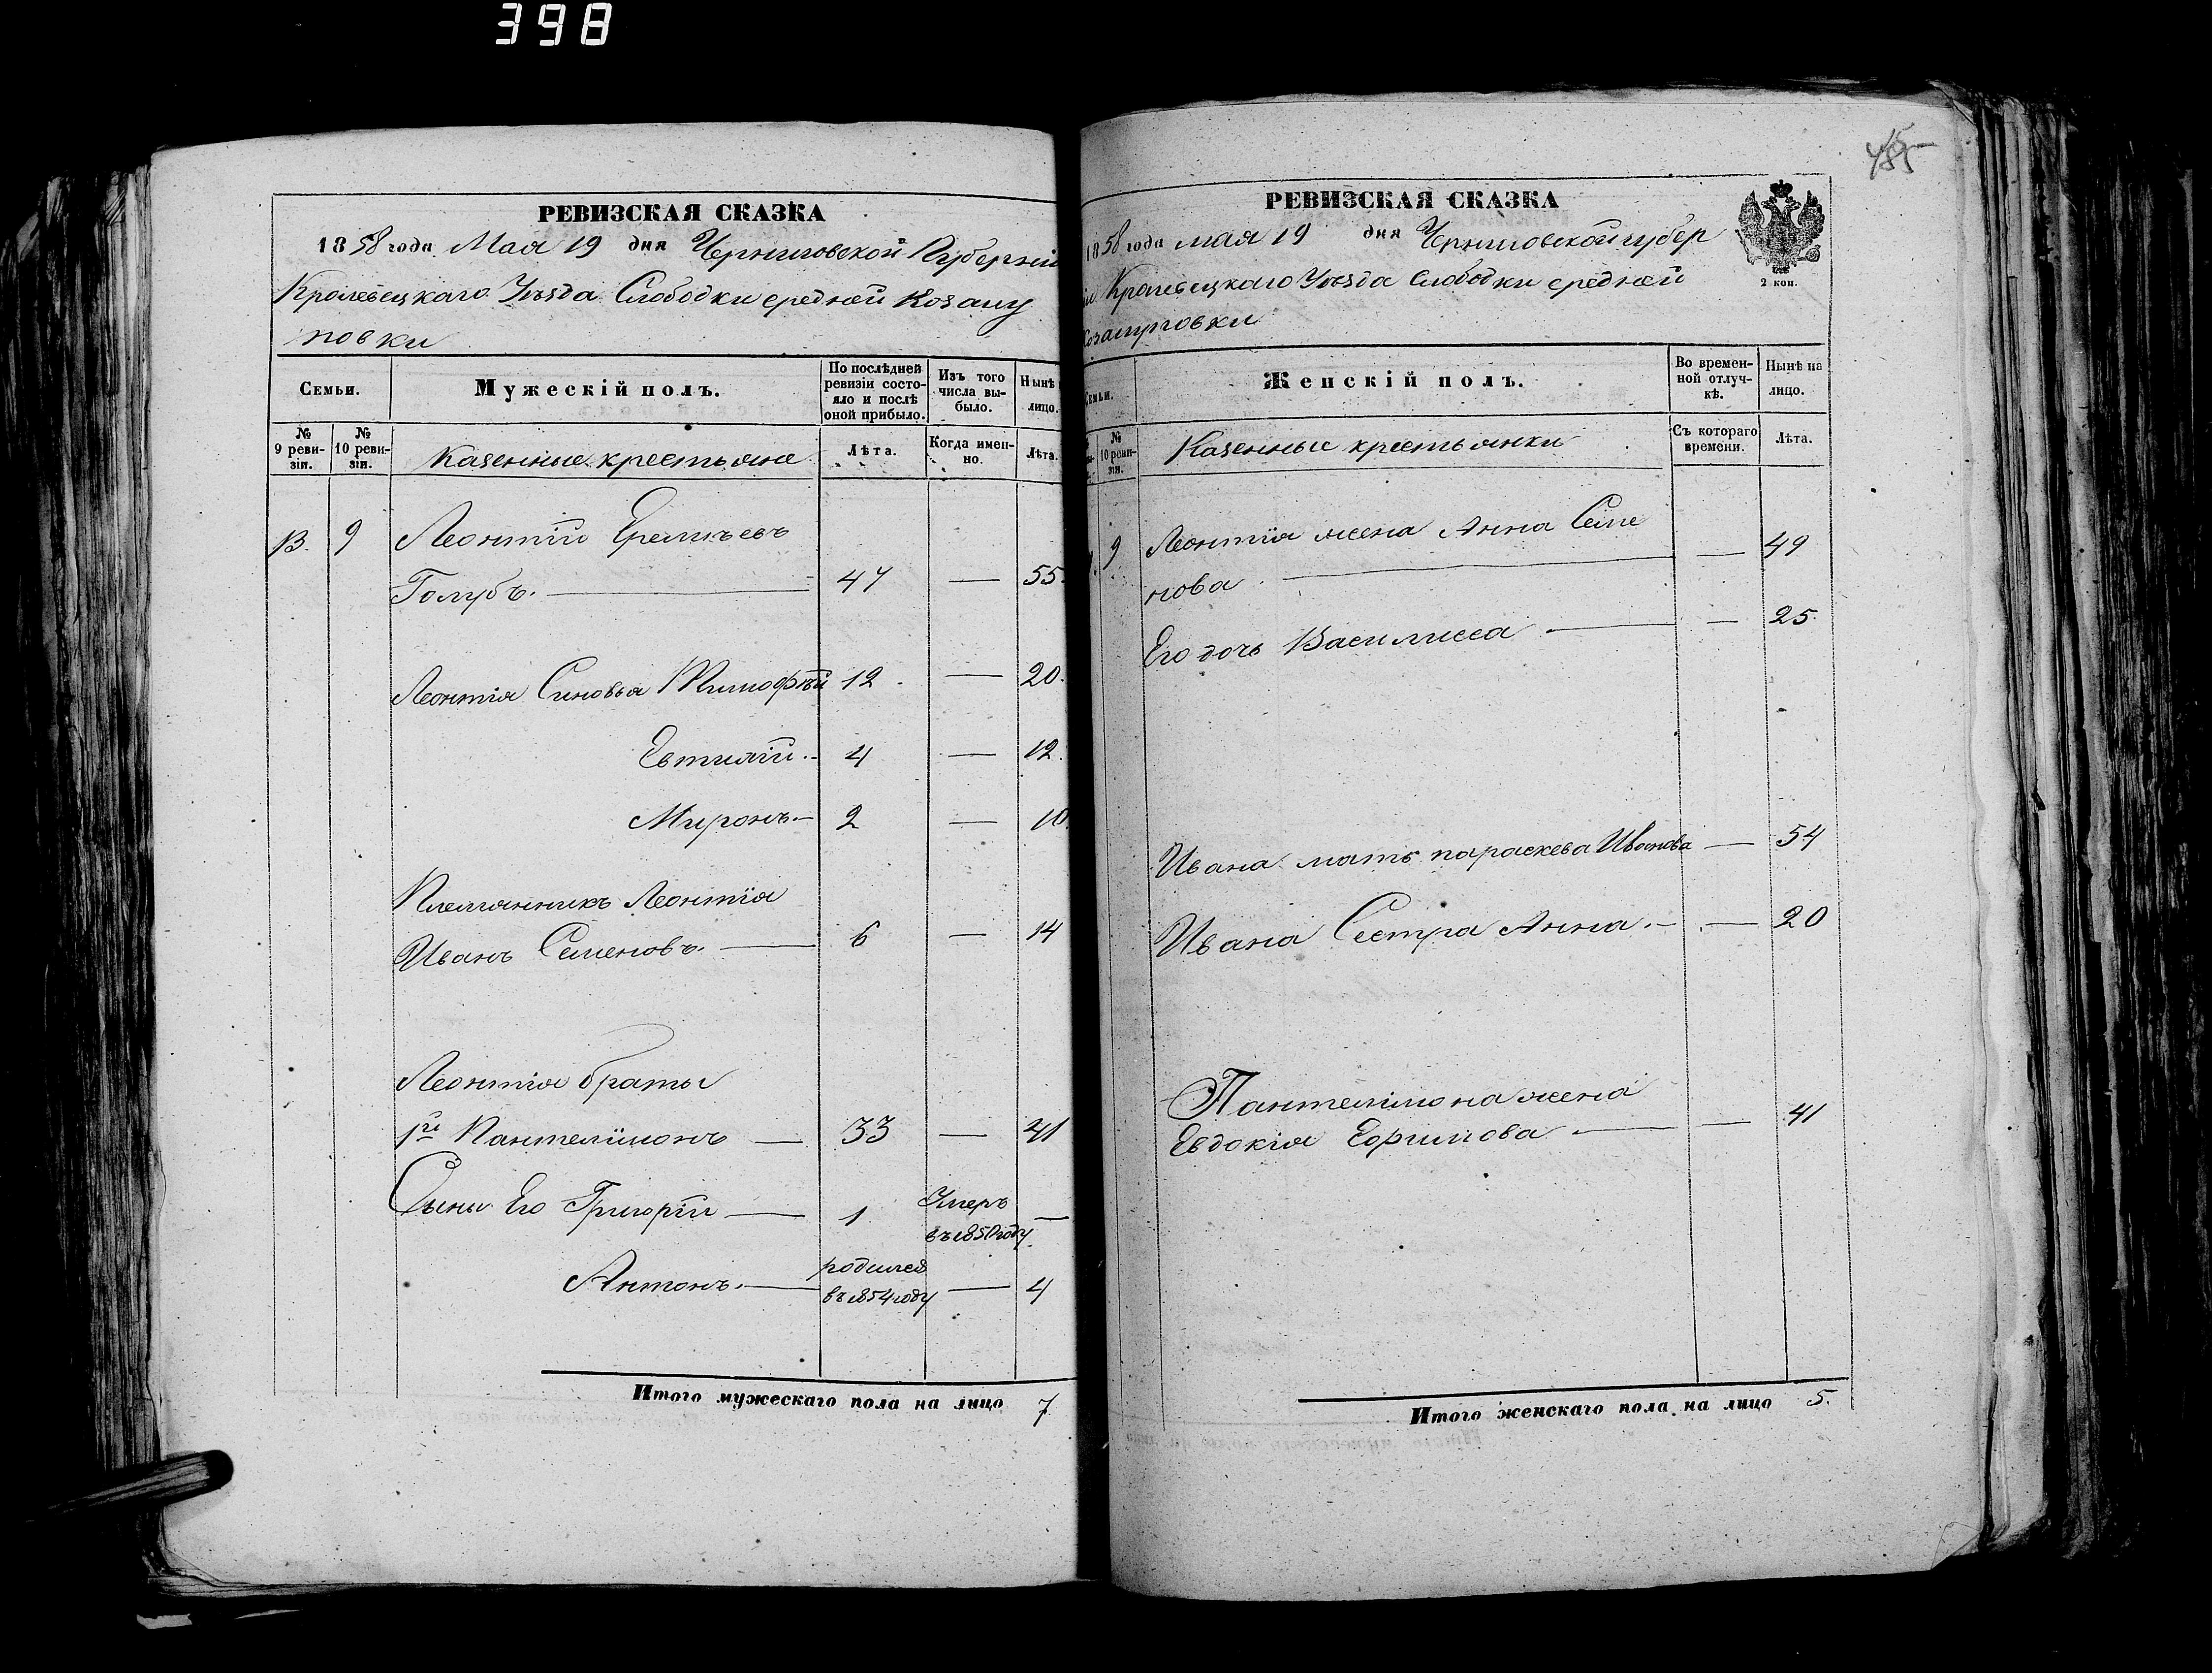 398
РЕВИЗСКАЯ СКАЗКА
1858 года Мая 19 дня Черниговской Губерніи
Кролевецкаго Уѣзда Слободки средней Козацу
повки
Семьи.
Мужескій полъ.
По послѣдней ревизіи состояло и послѣ оной прибыло.
Изъ того числа выбыло.
Нынѣ лицо.
№ 9 ревизіи.
№ 10 ревизіи.
Казенные крестьяне
Лѣта.
Когда именно.
Лѣта.
13. 9 Леонтій Еремѣевъ
Голубъ. — 47 — 55.
Леонтія Синовья Тимофѣй 12 — 20.
Евтихій. — 4 — 12.
Миронъ. — 2 — 10.
Племянникъ Леонтія
Иванъ Семеновъ. — 6 — 14
Леонтія браты
1й Пантелимонъ — 33 — 41
Сыны Его Григорій — 1 Умеръ въ 1850 году —
Антонъ. — родился въ 1854 году — 4
Итого мужескаго пола на лицо 7
485
РЕВИЗСКАЯ СКАЗКА
1858 года мая 19 дня Черниговской губер
іи Кролевецкаго Уѣзда Слободки средней
2 коп.
Женскій полъ.
Во временной отлучкѣ.
Нынѣ на лицо.
№ 10 ревизіи.
Казенные крестьянки
Съ котораго времени.
Лѣта.
9 Леонтія жена Анна Семе
нова. — — 49
Его дочь Василисса — — 25.
Ивана мать параскева Иванова — 54
Ивана Сестра Анна. — — 20
Пантелимона жена
Евдокія Ефимова — — 41
Итого женскаго пола на лицо 5.